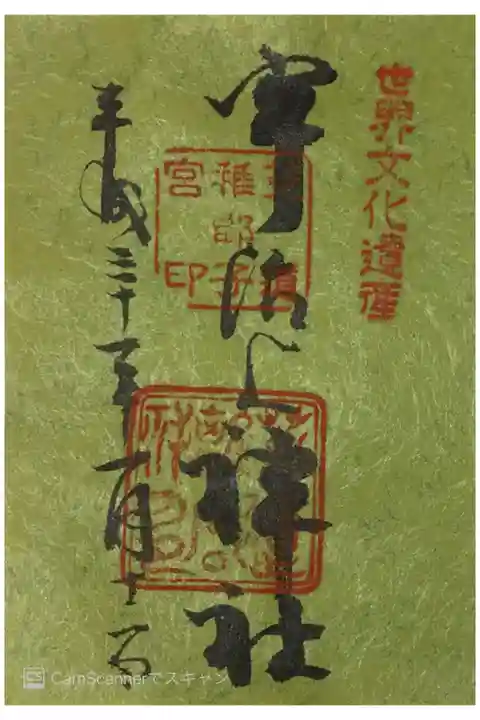 世界文化遺産
宇治上神社
莵道
稚郎子
宮印
平成三十一年一月
CS CamScannerでスキャン